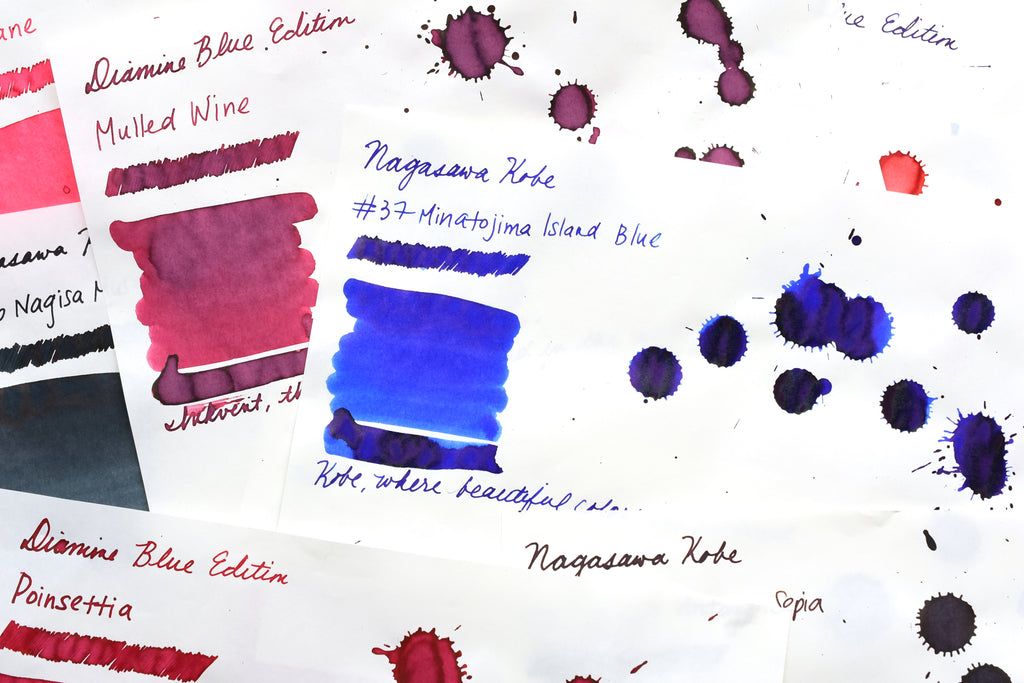 Diamine Blue Edition
Mulled Wine
Inkvent,
Nagasawa Kobe
#37 Minatojima Island Blue
Kobe, where beautiful
Edition
Nagisa
Diamine Blue Edition
Poinsettia
Nagasawa Kobe